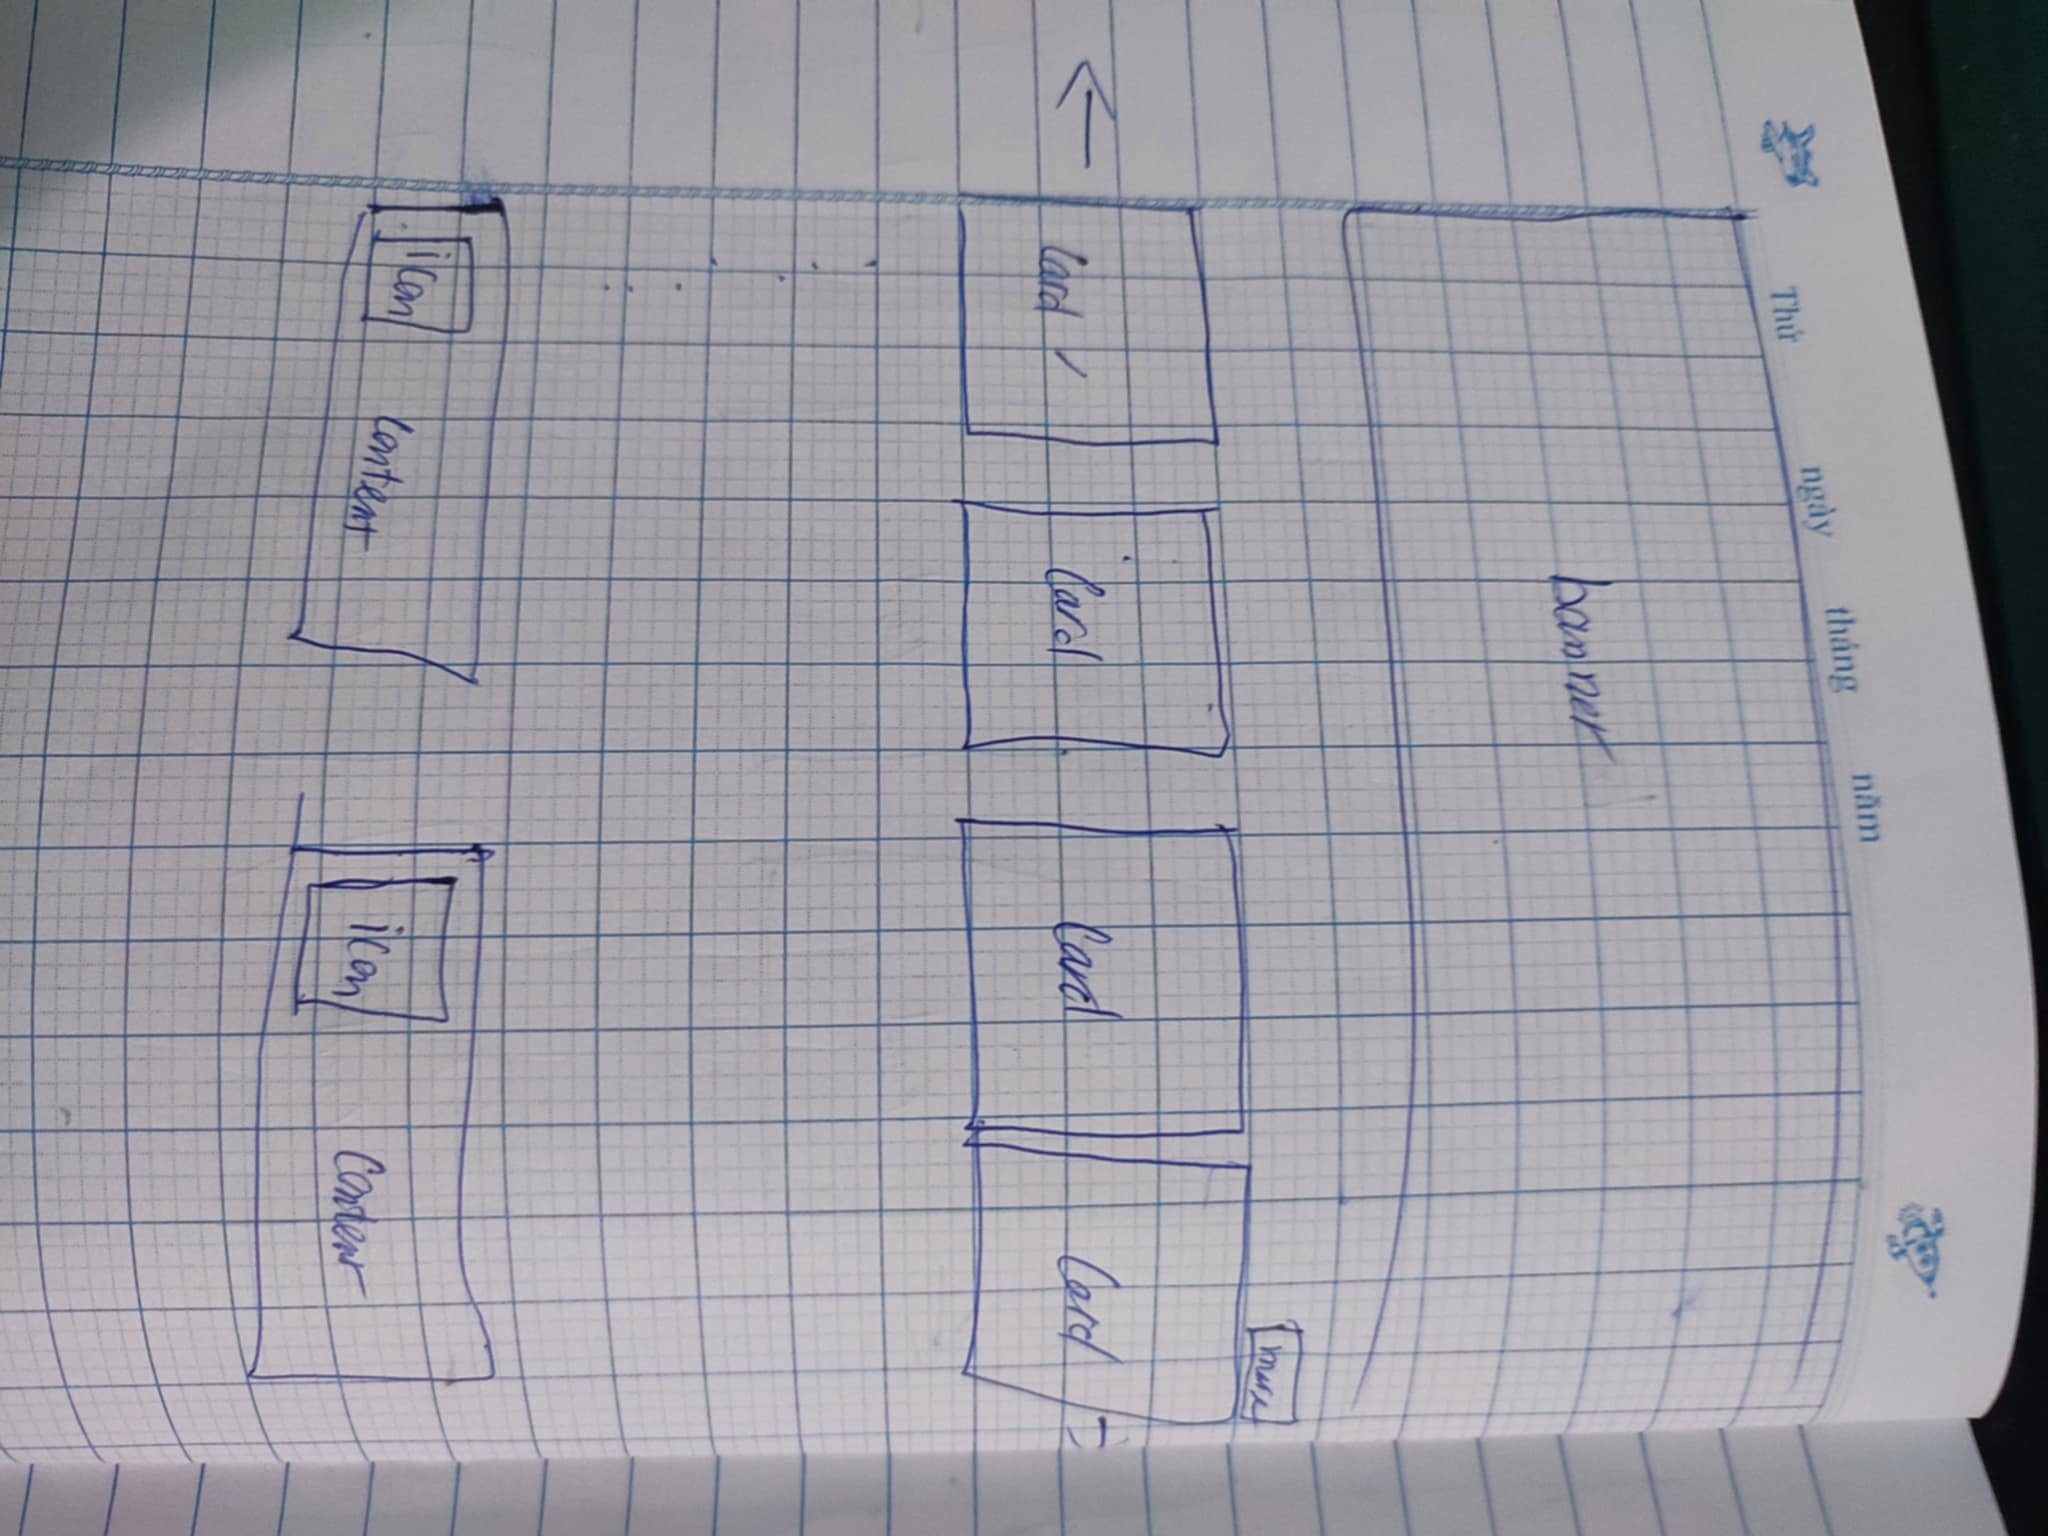 Thứ ngày tháng năm
banner
more
Card Card Card Card
icon content icon Content